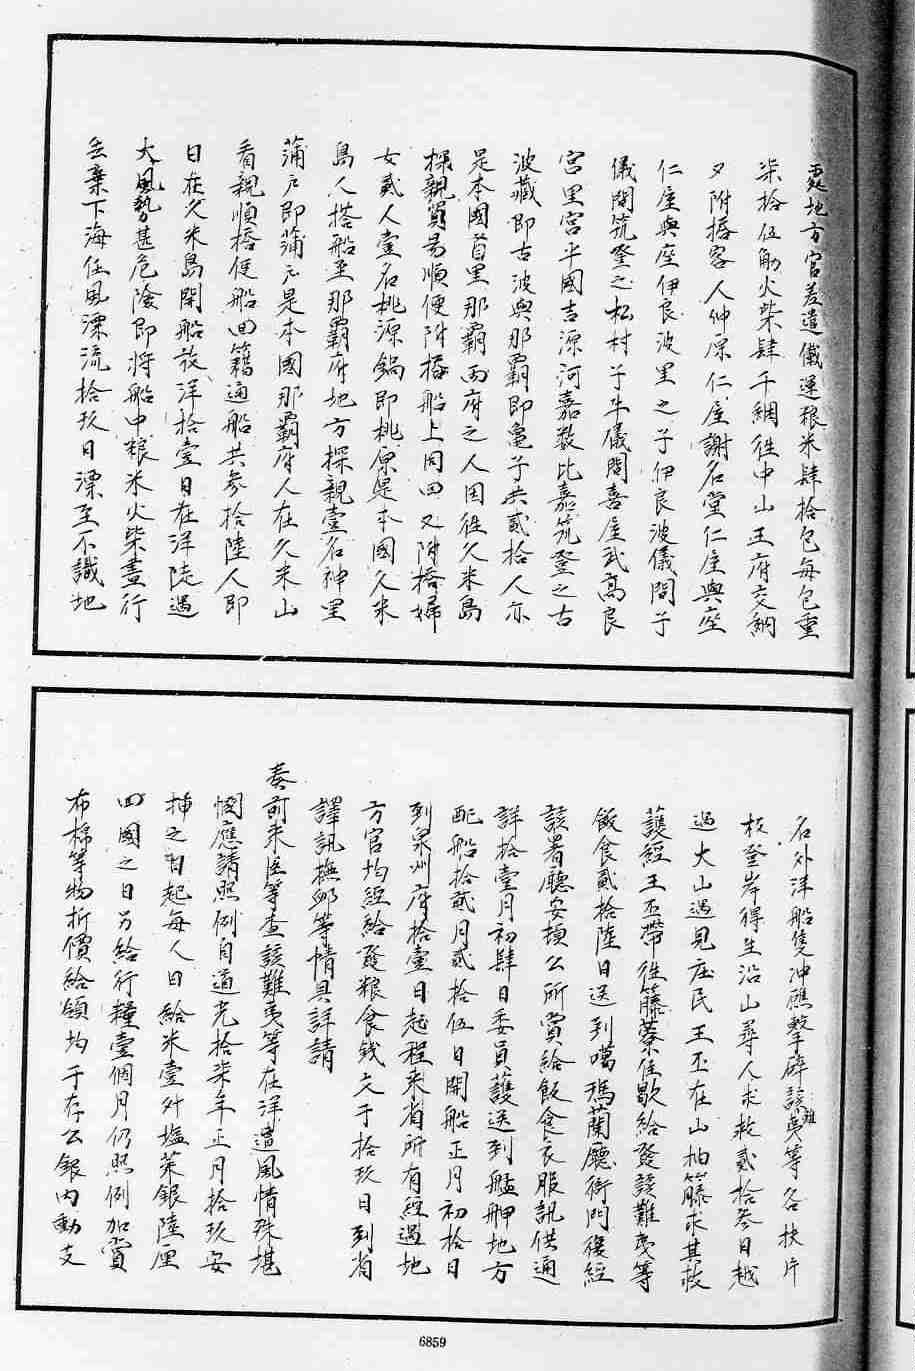 地方官差遣儎運粮米肆拾包每包重
柒拾伍觔火柴肆千綑徃中山王府交納
又附搭客人仲原仁屋謝名堂仁屋與座
仁屋與座伊良波里之子伊良波儀間子
儀間筑登之松村子牛儀間喜屋武高良
宮里宮平國吉源河嘉数比嘉筑登之古
波藏即古波與那覇即亀子共貳拾人亦
是本國首里那霸两府之人因徃久米島
探親貿易順便附搭船上同回又附搭婦
女貳人壹名桃源鍋即桃原是本國久米
島人搭船至那霸府地方探親壹名神里
蒲戶即蒲元是本國那霸府人在久米山
看親順搭便船囬籍通船共参拾陸人即
日在久米島開船放洋拾壹日在洋陡遇
大風勢甚危險即將船中粮米火柴盡行
丟棄下海任風漂流拾玖日漂至不識地
名外洋船隻冲礁擊碎該难夷等各扶片
板登岸得生沿山尋人求救貳拾叁日越
過大山遇見庄民王丕在山抽籐求其救
護經王丕帶徃籐藔住歇給發該難夷等
飯食貳拾陸日送到噶瑪蘭廳衙門復經
該署廳安頓公所賞給飯食衣服訊供通
詳拾壹月初肆日委員護送到艋舺地方
配船拾貳月貳拾伍日開船正月初拾日
到泉州府拾壹日起程來省所有經過地
方官均經給發粮食錢文于拾玖日到省
譯訊撫卹等情具詳請
奏前來臣等查該難夷等在洋遭風情殊堪
憫應請照例自道光拾柒年正月拾玖安
揷之日起每人日給米壹升塩菜銀陸厘
囬國之日另給行糧壹個月仍照例加賞
布棉等物折價給領均于存公銀內動支
6859